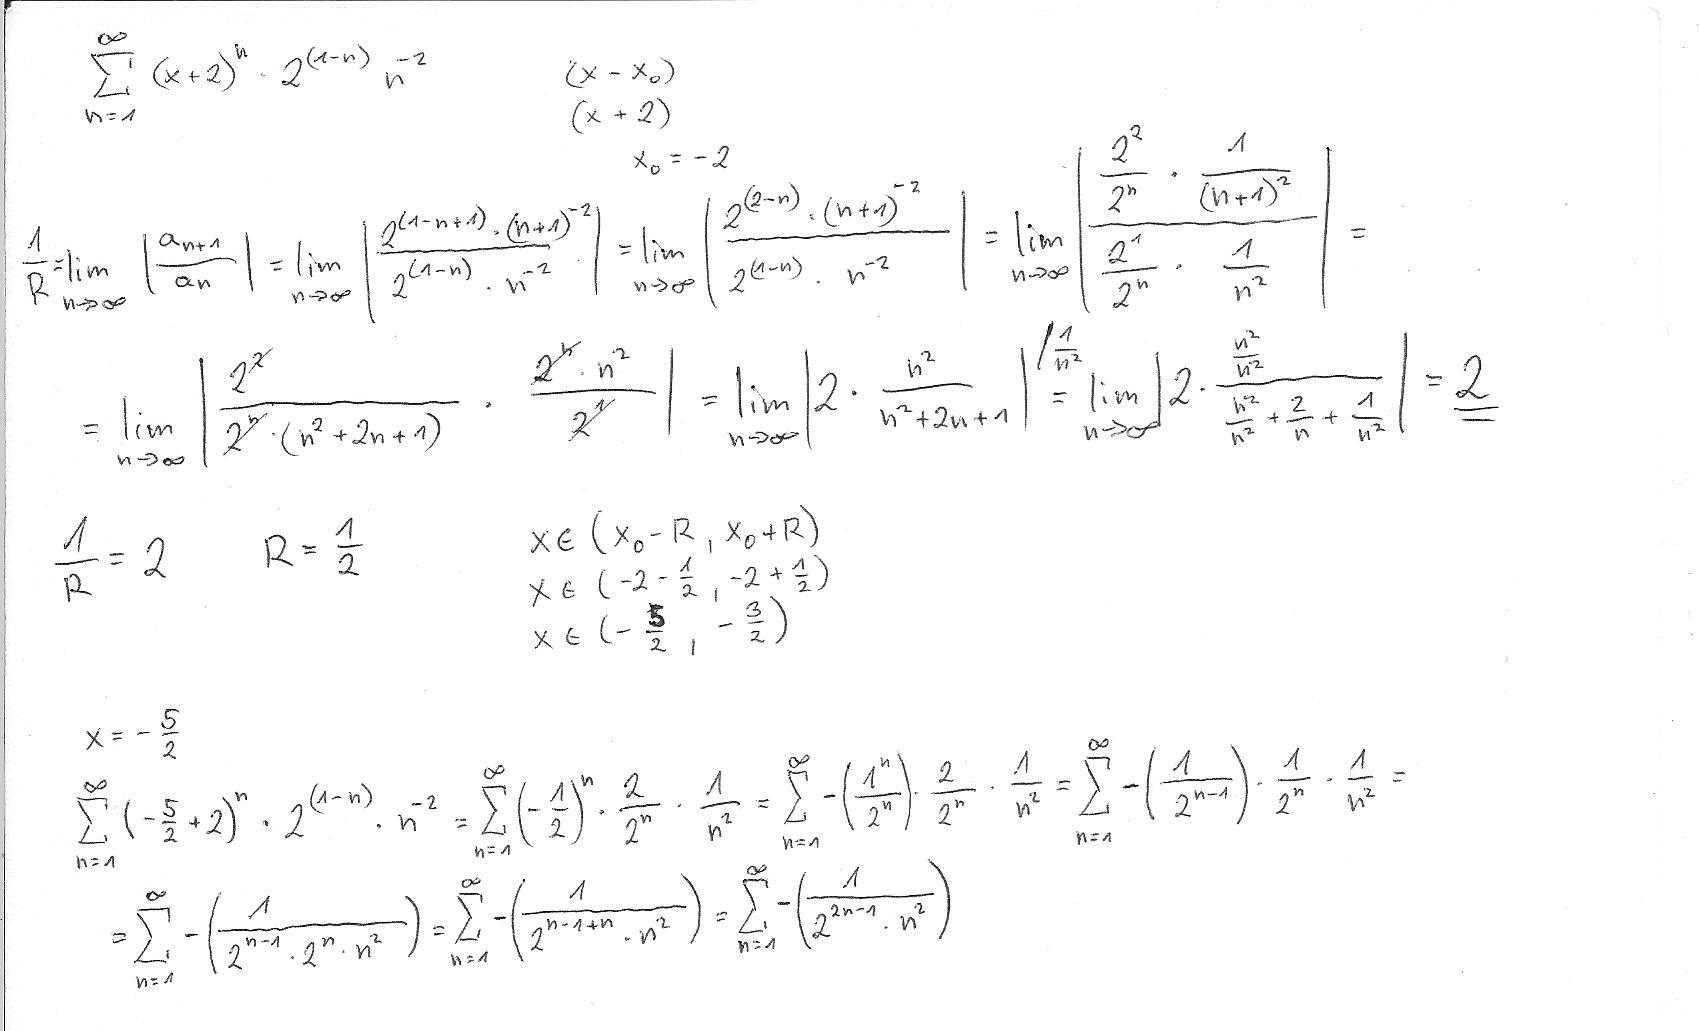 ∑_{n=1}^{∞} (x+2)^n · 2^{(1-n)} n^{-2}
(x - x₀)
(x + 2)
x₀ = -2
1/R = lim_{n→∞} |a_{n+1}/a_n| = lim_{n→∞} |(2^{(1-n+1)} · (n+1)^{-2})/(2^{(1-n)} · n^{-2})| = lim_{n→∞} |(2^{(2-n)} · (n+1)^{-2})/(2^{(1-n)} · n^{-2})| = lim_{n→∞} |(2²/2^n · 1/(n+1)²)/(2^1/2^n · 1/n²)| =
= lim_{n→∞} |2²/(2^n · (n²+2n+1)) · (2^n · n²)/2^1| = lim_{n→∞} |2 · n²/(n²+2n+1)| /1/n² = lim_{n→∞} |2 · (n²/n²)/(n²/n² + 2/n + 1/n²)| = 2
1/R = 2 R = 1/2
x ∈ (x₀-R, x₀+R)
x ∈ (-2-1/2, -2+1/2)
x ∈ (-5/2, -3/2)
x = -5/2
∑_{n=1}^{∞} (-5/2+2)^n · 2^{(1-n)} · n^{-2} = ∑_{n=1}^{∞} (-1/2)^n · 2/2^n · 1/n² = ∑_{n=1}^{∞} -(1^n/2^n) · 2/2^n · 1/n² = ∑_{n=1}^{∞} -(1/2^{n-1}) · 1/2^n · 1/n² =
= ∑_{n=1}^{∞} -(1/(2^{n-1} · 2^n · n²)) = ∑_{n=1}^{∞} -(1/(2^{n-1+n} · n²)) = ∑_{n=1}^{∞} -(1/(2^{2n-1} · n²))